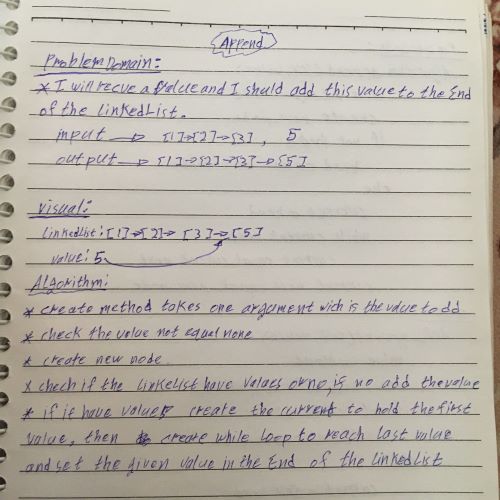 Append
Problem Domain:
* I will recve a value and I should add this value to the End
of the LinkedList.
input → [1]→[2]→[3], 5
output → [1]→[2]→[3]→[5]
Visual:
LinkedList: [1]→[2]→ [3]→[5]
value: 5
Algorithm:
* create method takes one argument wich is the value to add.
* check the value not equal none
* create new node
* chech if the linkelist have values or no, if no add the value
* if it have values create the current to hold the first
value, then create while loop to reach last value
and set the given value in the End of the LinkedList